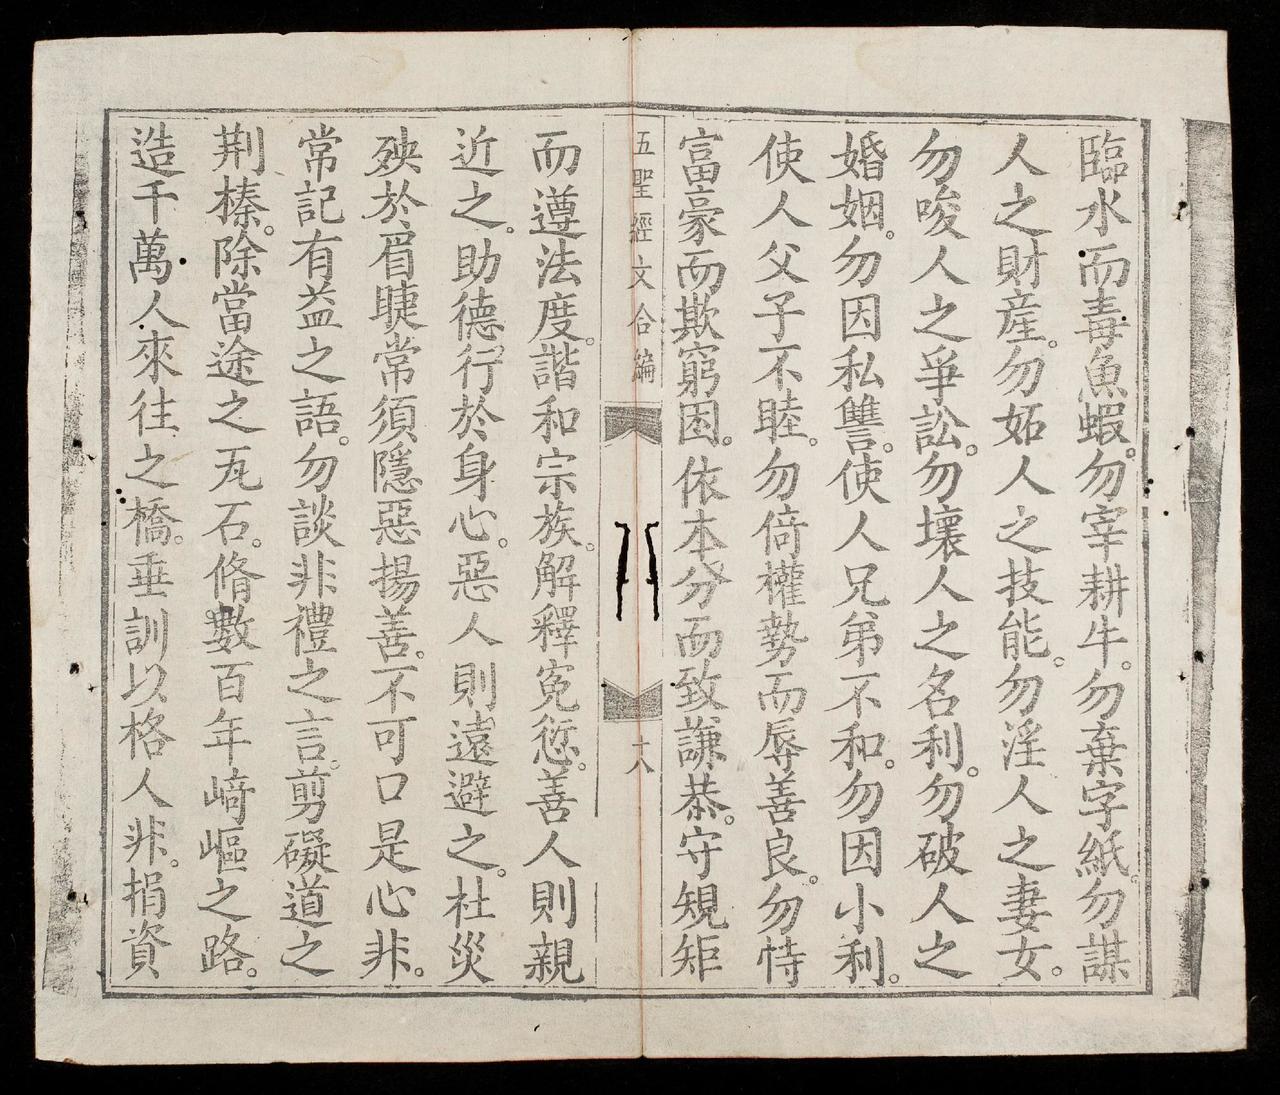 臨水而毒魚蝦。勿宰耕牛。勿棄字紙。勿謀
人之財產。勿妬人之技能。勿淫人之妻女。
勿唆人之爭訟。勿壞人之名利。勿破人之
婚姻。勿因私讐。使人兄弟不和。勿因小利。
使人父子不睦。勿倚權勢而辱善良。勿恃
富豪而欺窮困。依本分而致謙恭。守規矩
五聖經文合編
十八
而遵法度。諧和宗族。解釋寃愆。善人則親
近之。助德行於身心。惡人則遠避之。杜災
殃於眉睫。常須隱惡揚善。不可口是心非。
常記有益之語。勿談非禮之言。剪礙道之
荆榛。除當途之瓦石。脩數百年﨑嶇之路。
造千萬人來往之橋。垂訓以格人非。捐資